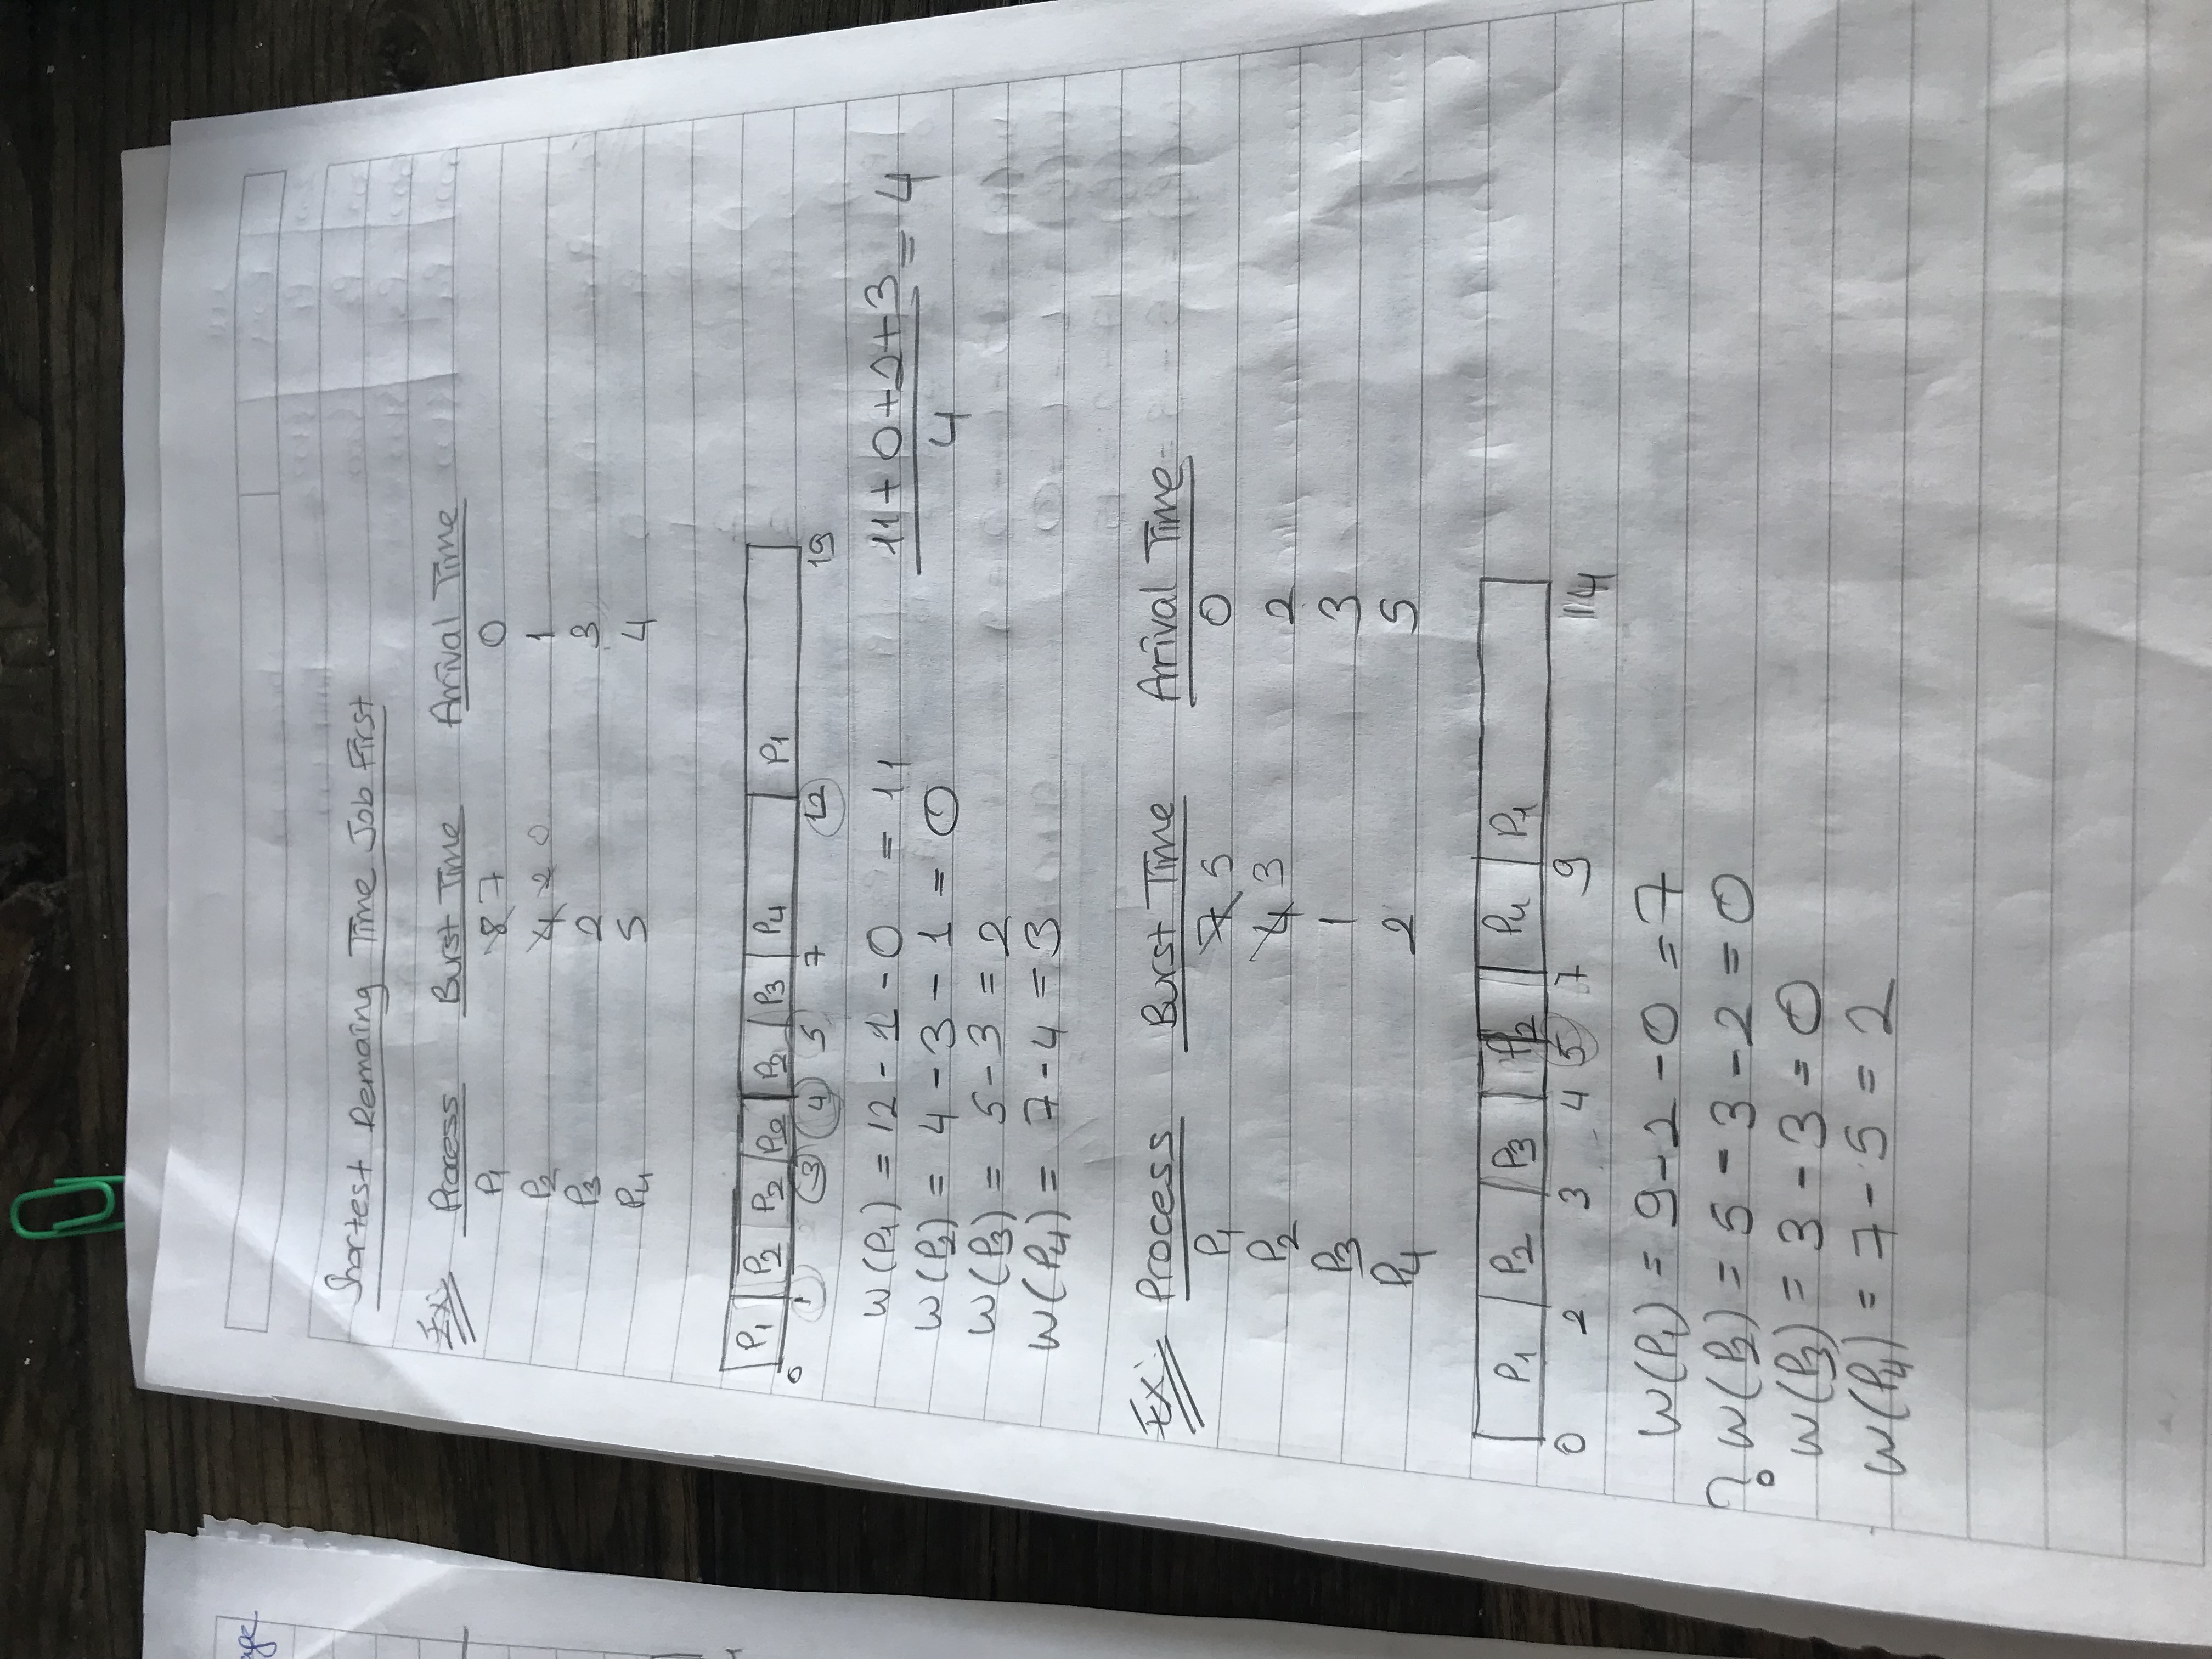 age
Shortest Remaing Time Job First
Ex: Process Burst Time Arrival Time
P1 8 7 0
P2 4 2 0 1
P3 2 3
P4 5 4
P1 P2 P2 P2 P2 P3 P4 P1
0 1 3 4 5 7 12 19
W(P1) = 12 - 1 - 0 = 11 11 + 0 + 2 + 3 = 4
W(P2) = 4 - 3 - 1 = 0 4
W(P3) = 5 - 3 = 2
W(P4) = 7 - 4 = 3
EX: Process Burst Time Arrival Time
P1 7 5 0
P2 4 3 2
P3 1 3
P4 2 5
P1 P2 P3 P2 P4 P1
0 2 3 4 5 7 9 14
W(P1) = 9 - 2 - 0 = 7
? W(P2) = 5 - 3 - 2 = 0
W(P3) = 3 - 3 = 0
W(P4) = 7 - 5 = 2